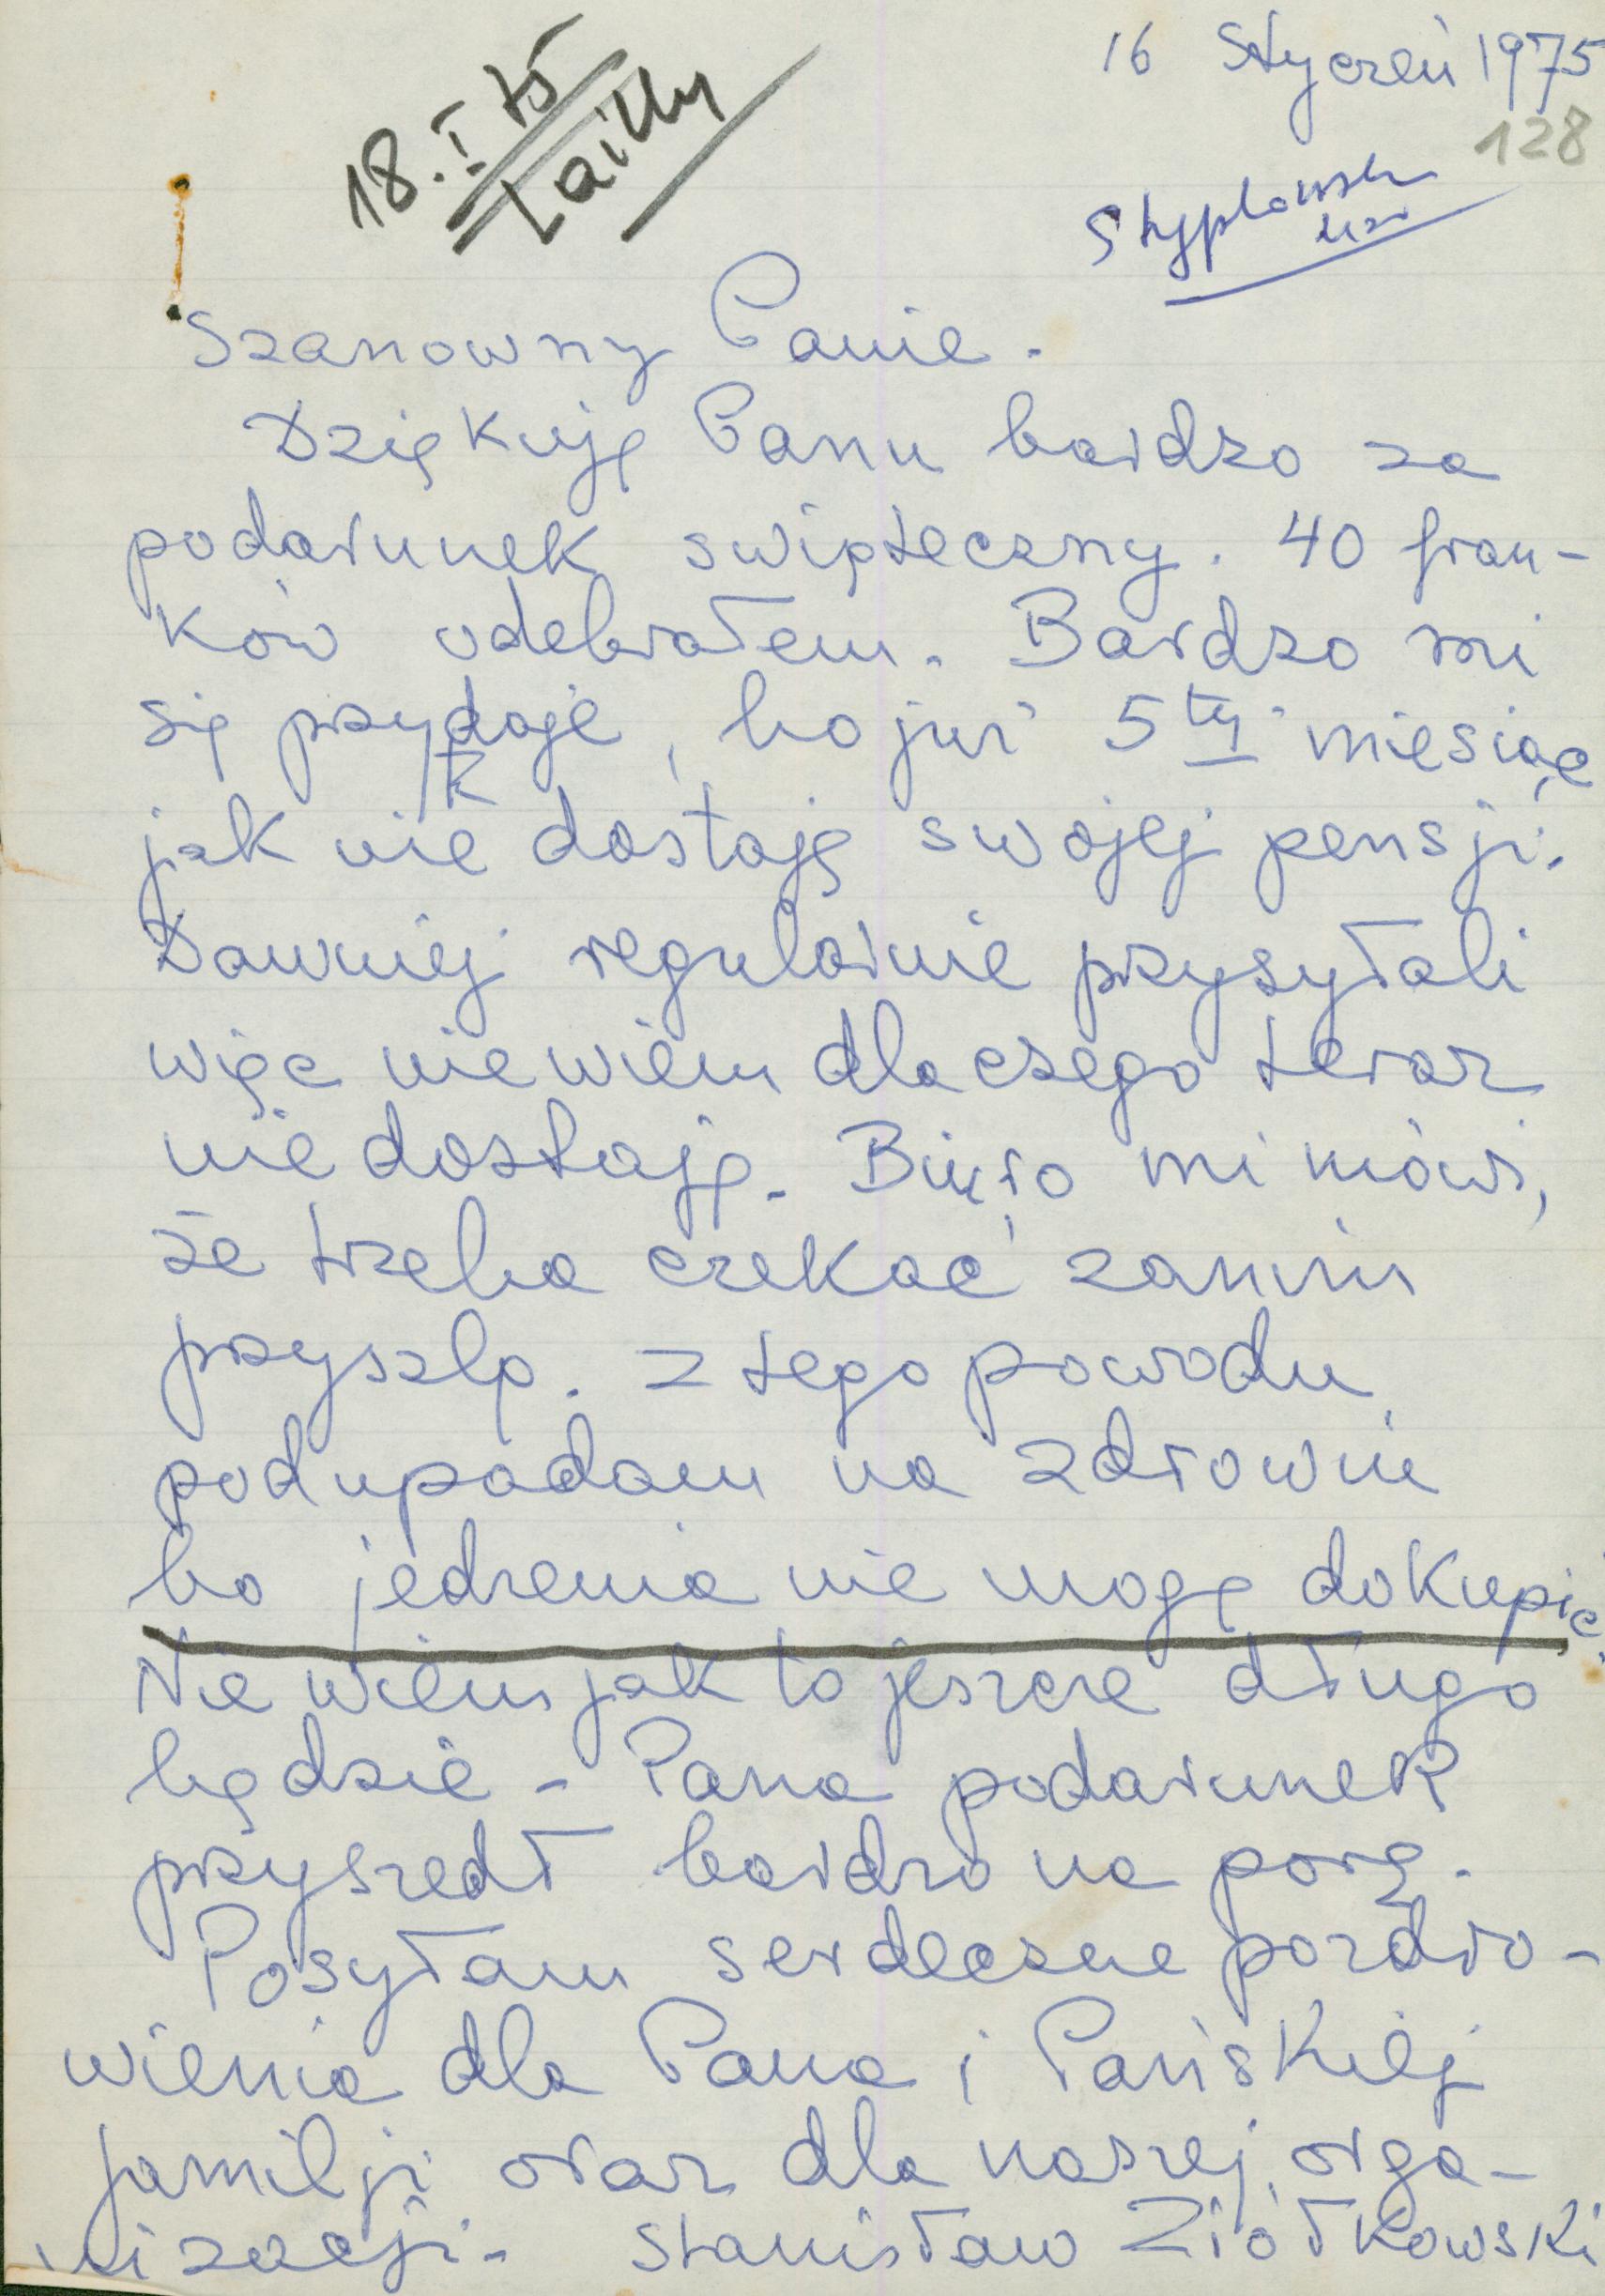 16 Styczeń 1975
128
18.I.75
Szanowny Panie.
Dziękuję Panu bardzo za
podarunek swiąteczny. 40 fran-
ków odebrałem. Bardzo mi
się przydaje, bo już 5ty miesiąc
jak nie dostaję swojej pensji.
Dawniej regularnie przysyłali
więc nie wiem dlaczego teraz
nie dostaję. Biuro mi mówi,
że trzeba czekać zanim
przyszlą. Z tego powodu
podupadam na zdrowiu
bo jedzenia nie mogę dokupić.
Nie wiem jak to jeszcze długo
będzie - Pana podarunek
przyszedł bardzo na porę.
Posyłam serdeczne pozdro-
wienia dla Pana i Pańskiej
familji oraz dla naszej orga-
nizacji. Stanisław Ziółkowski